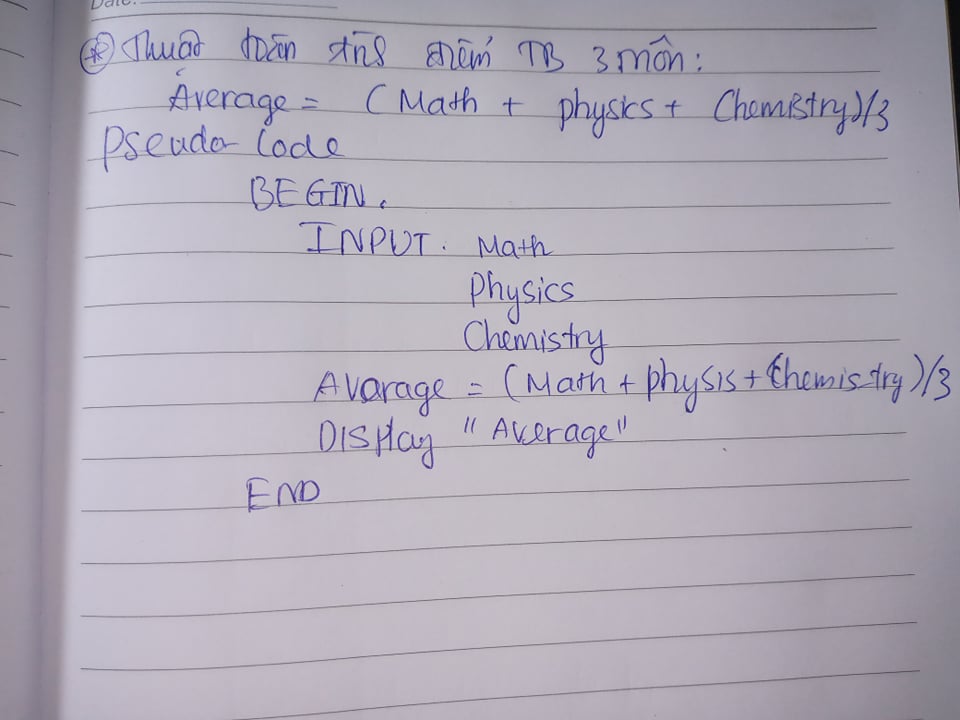 Date:
* Thuật toán tính điểm TB 3 môn:
Average = (Math + physics + Chemistry)/3
Pseudo Code
BEGIN.
INPUT. Math
Physics
Chemistry
Avarage = (Math + physis + Chemistry)/3
Display "Average"
END